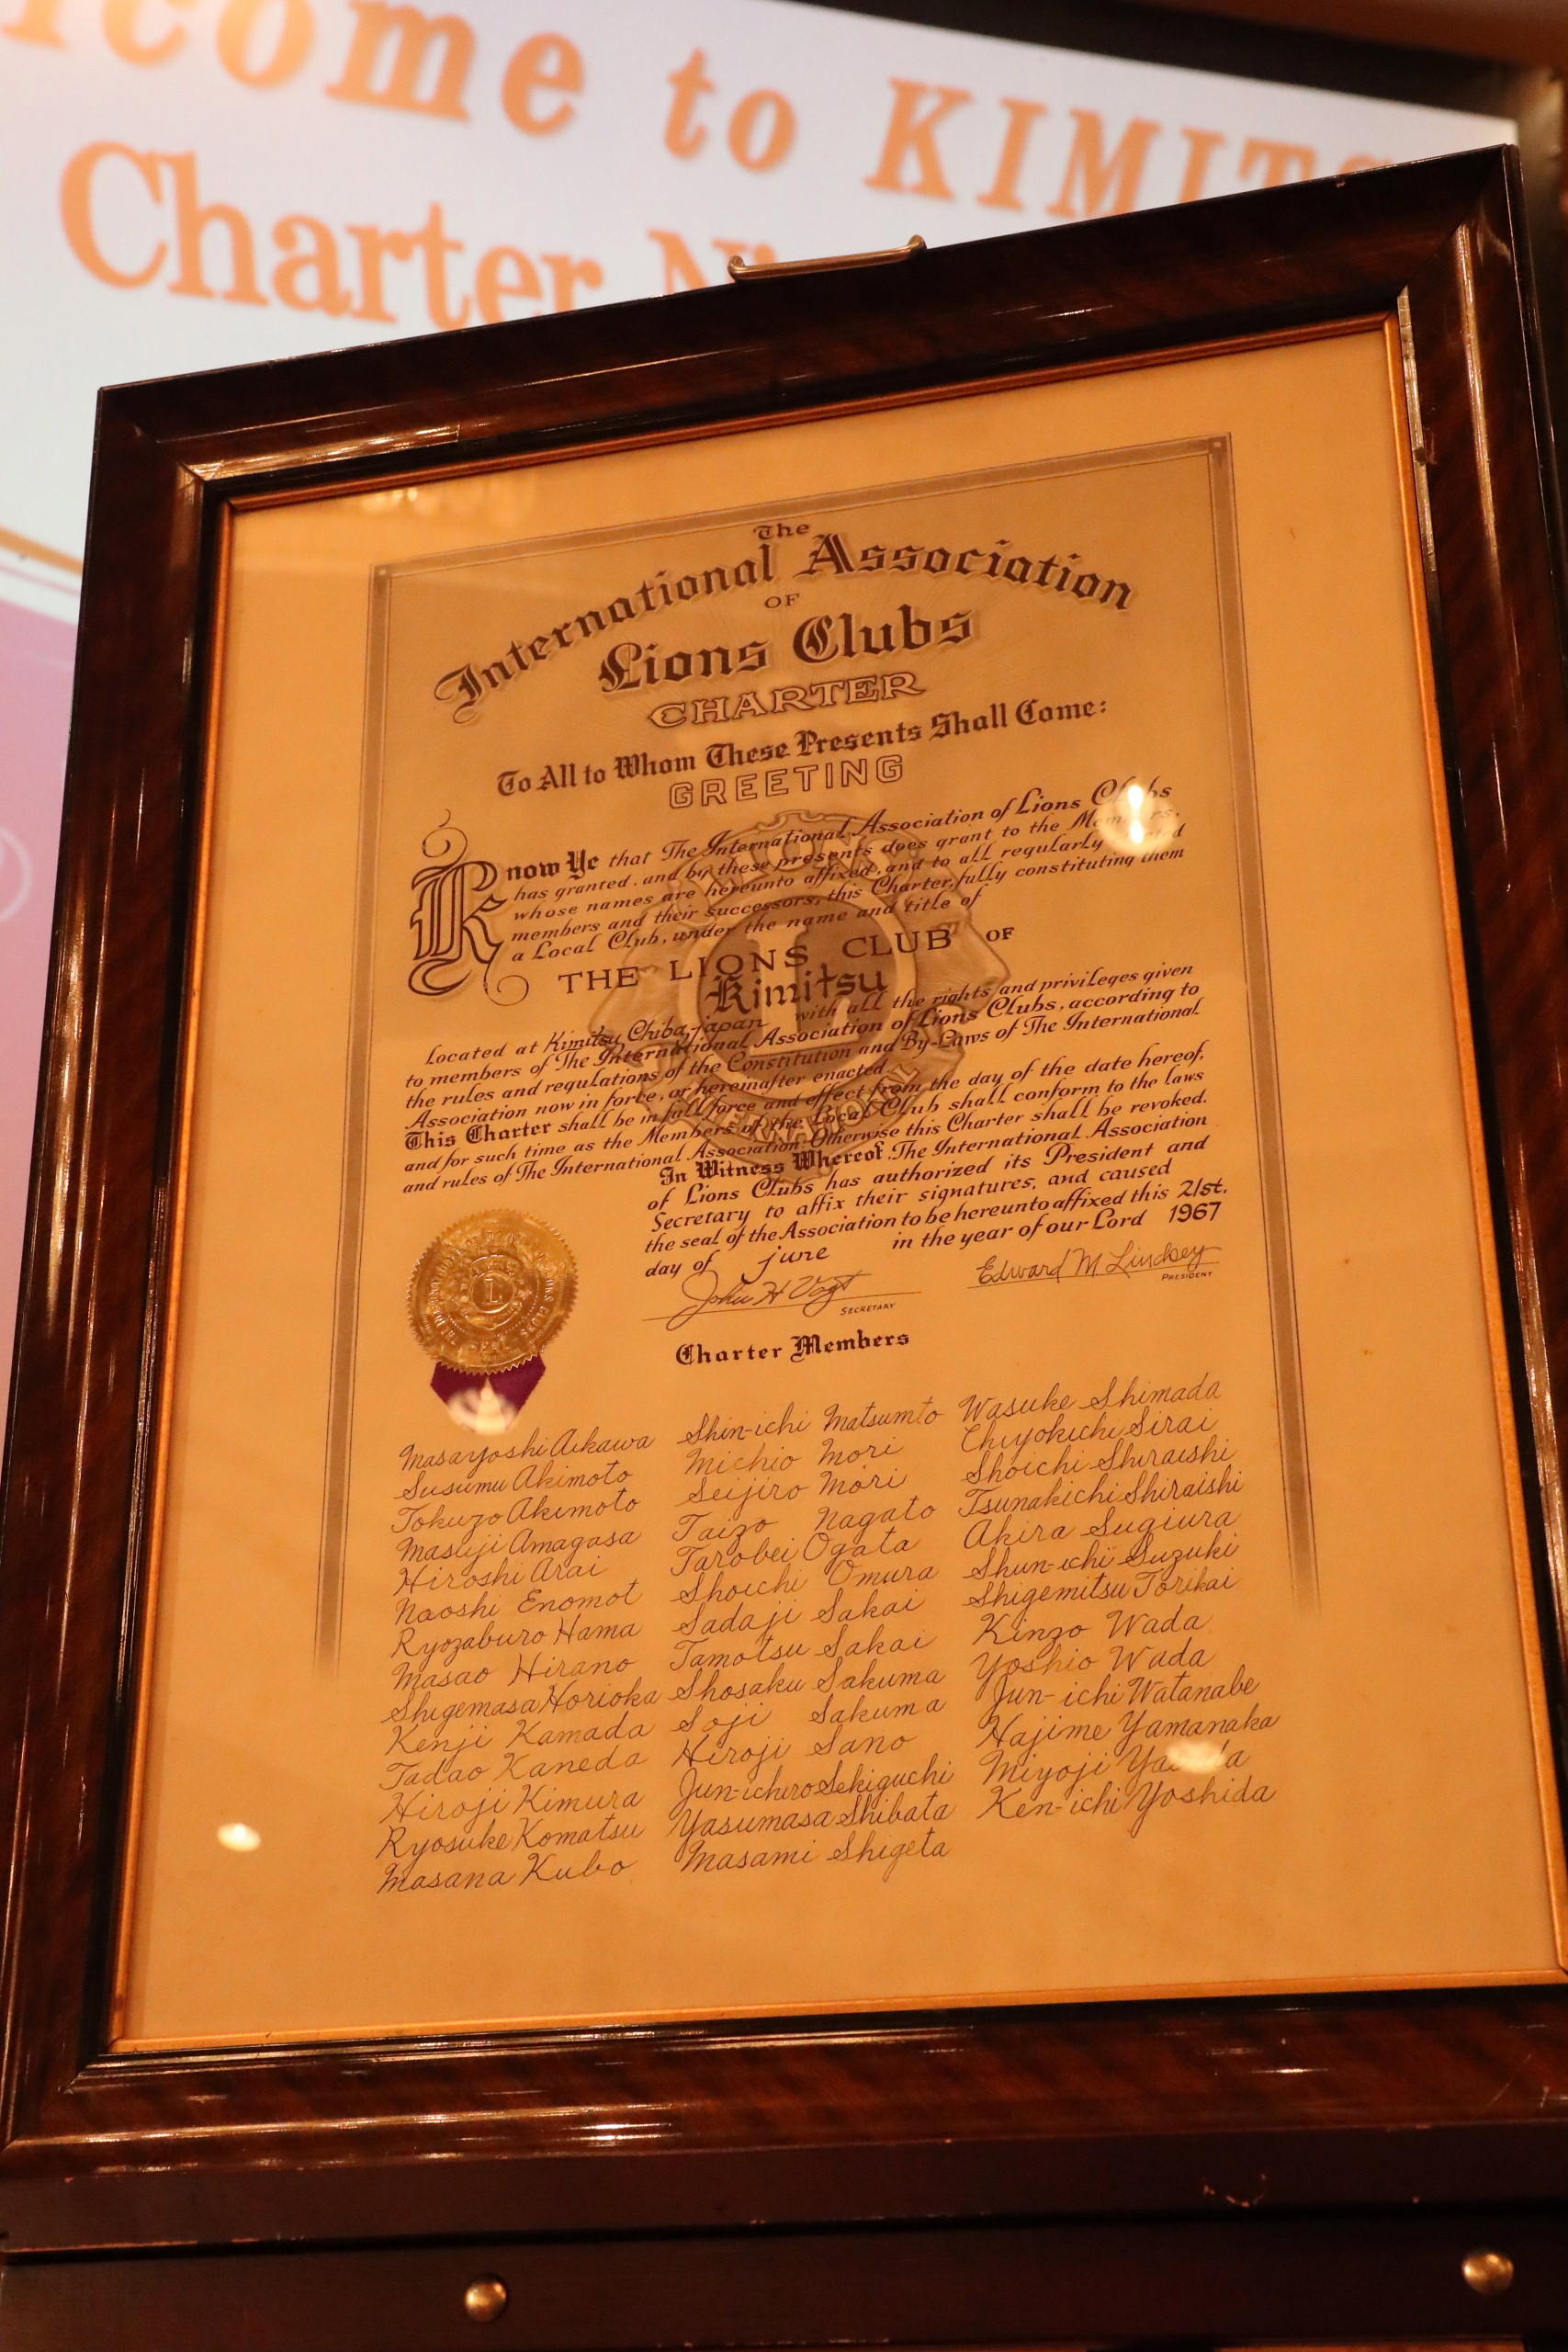 come to KIMITS
Charter Ni
The
International Association
OF
Lions Clubs
CHARTER
To All to Whom These Presents Shall Come:
GREETING
Know Ye that The International Association of Lions Clubs
has granted, and by these presents does grant to the Members,
whose names are hereunto affixed, and to all regularly
members and their successors, this Charter, fully constituting them
a Local Club, under the name and title of
THE LIONS CLUB OF
Kimitsu
Located at Kimitsu, Chiba, japan with all the rights and privileges given
to members of The International Association of Lions Clubs, according to
the rules and regulations of the Constitution and By-Laws of The International
Association now in force, or hereinafter enacted.
This Charter shall be in full force and effect from the day of the date hereof,
and for such time as the Members of the Local Club shall conform to the laws
and rules of The International Association: Otherwise this Charter shall be revoked.
In Witness Whereof, The International Association
of Lions Clubs has authorized its President and
Secretary to affix their signatures, and caused
the seal of the Association to be hereunto affixed this 21st.
day of june in the year of our Lord 1967
John H Vogt Edward M Lindsey
SECRETARY PRESIDENT
Charter Members
Masayoshi Aikawa Shin-ichi Matsumto Wasuke Shimada
Susumu Akimoto Michio Mori Chiyokichi Sirai
Tokuzo Akimoto Seijiro Mori Shoichi Shiraishi
Masuji Amagasa Taizo Nagato Tsunakichi Shiraishi
Hiroshi Arai Tarobei Ogata Akira Sugiura
Naoshi Enomot Shoichi Omura Shun-ichi Suzuki
Ryozaburo Hama Sadaji Sakai Shigemitsu Torikai
Masao Hirano Tamotsu Sakai Kinzo Wada
Shigemasa Horioka Shosaku Sakuma Yoshio Wada
Kenji Kamada Soji Sakuma Jun-ichi Watanabe
Tadao Kaneda Hiroji Sano Hajime Yamanaka
Hiroji Kimura Jun-ichiro Sekiguchi Miyoji
Ryosuke Komatsu Yasumasa Shibata Ken-ichi Yoshida
Masana Kubo Masami Shigeta